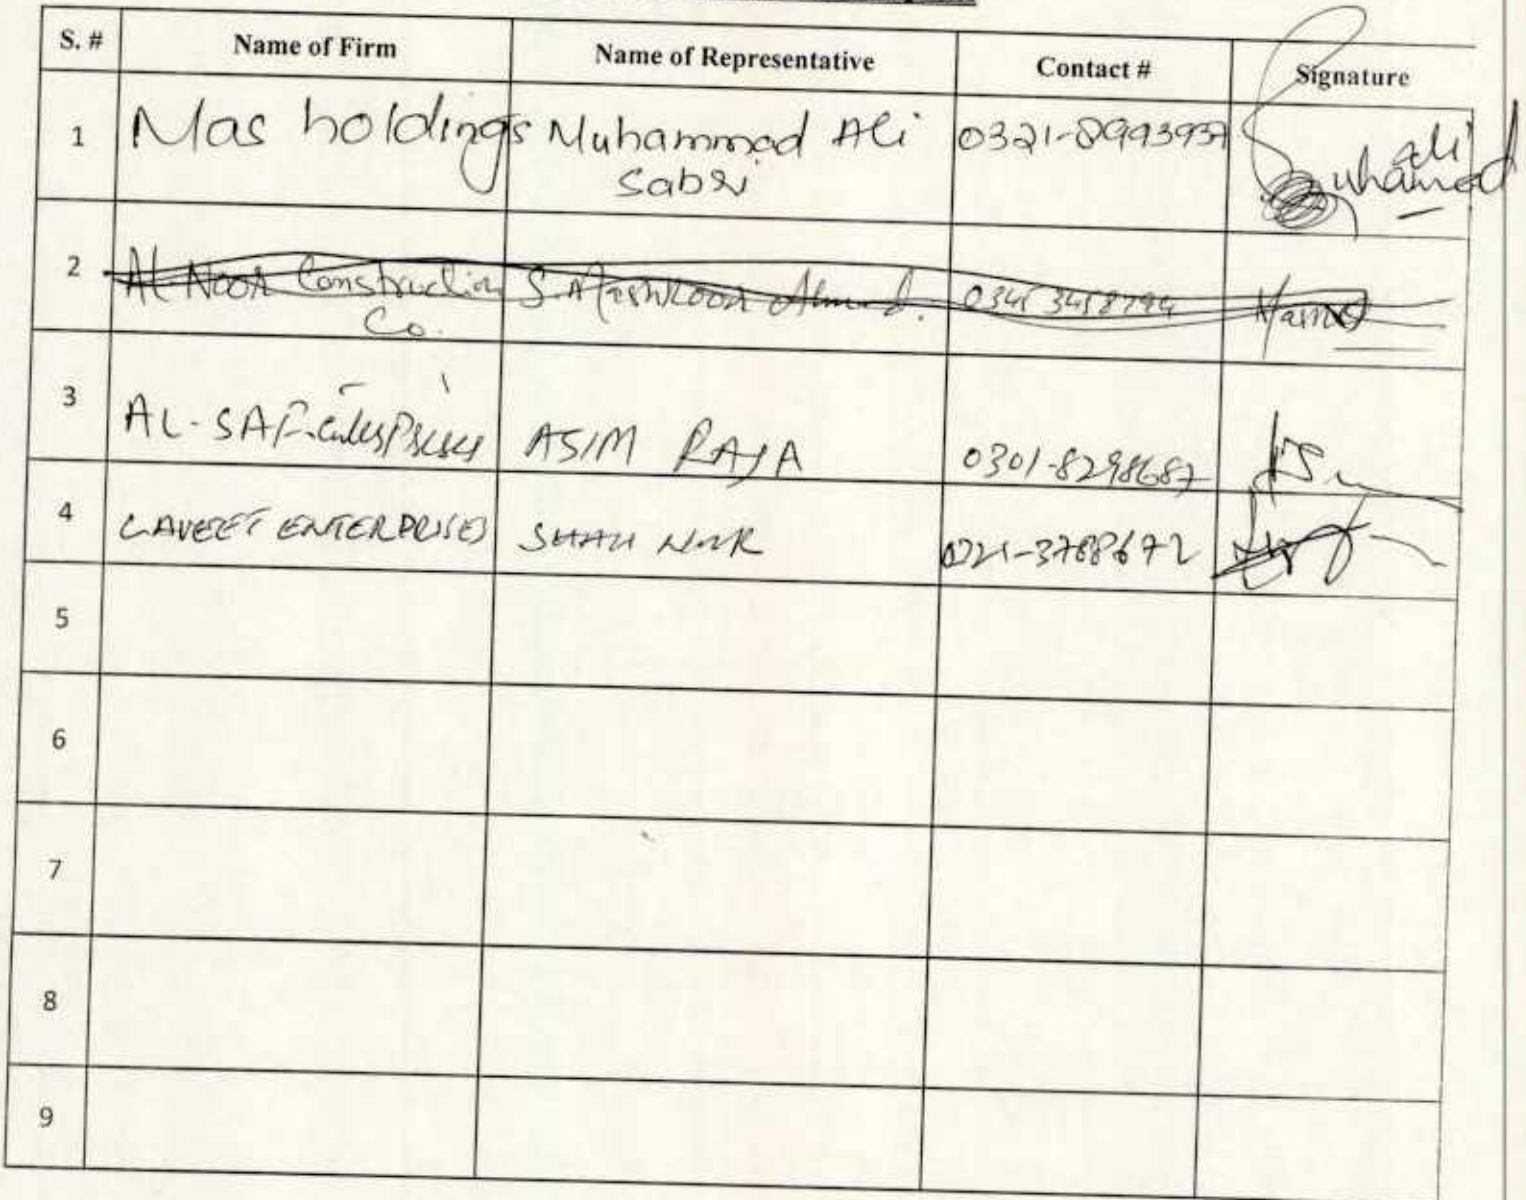 S. # Name of Firm Name of Representative Contact # Signature
1 Mas holdings Muhammad Ali 0321-8993937 ali
Sabri uhamad
2 Al-Noor Construction S. Mashkoor Ahmed. 0345 3458794
Co.
3 AL-SAF ASIM RAJA 0301-8298687
4 LAVEET ENTERPRISES SHAH NUR 0321-3788672
5
6
7
8
9